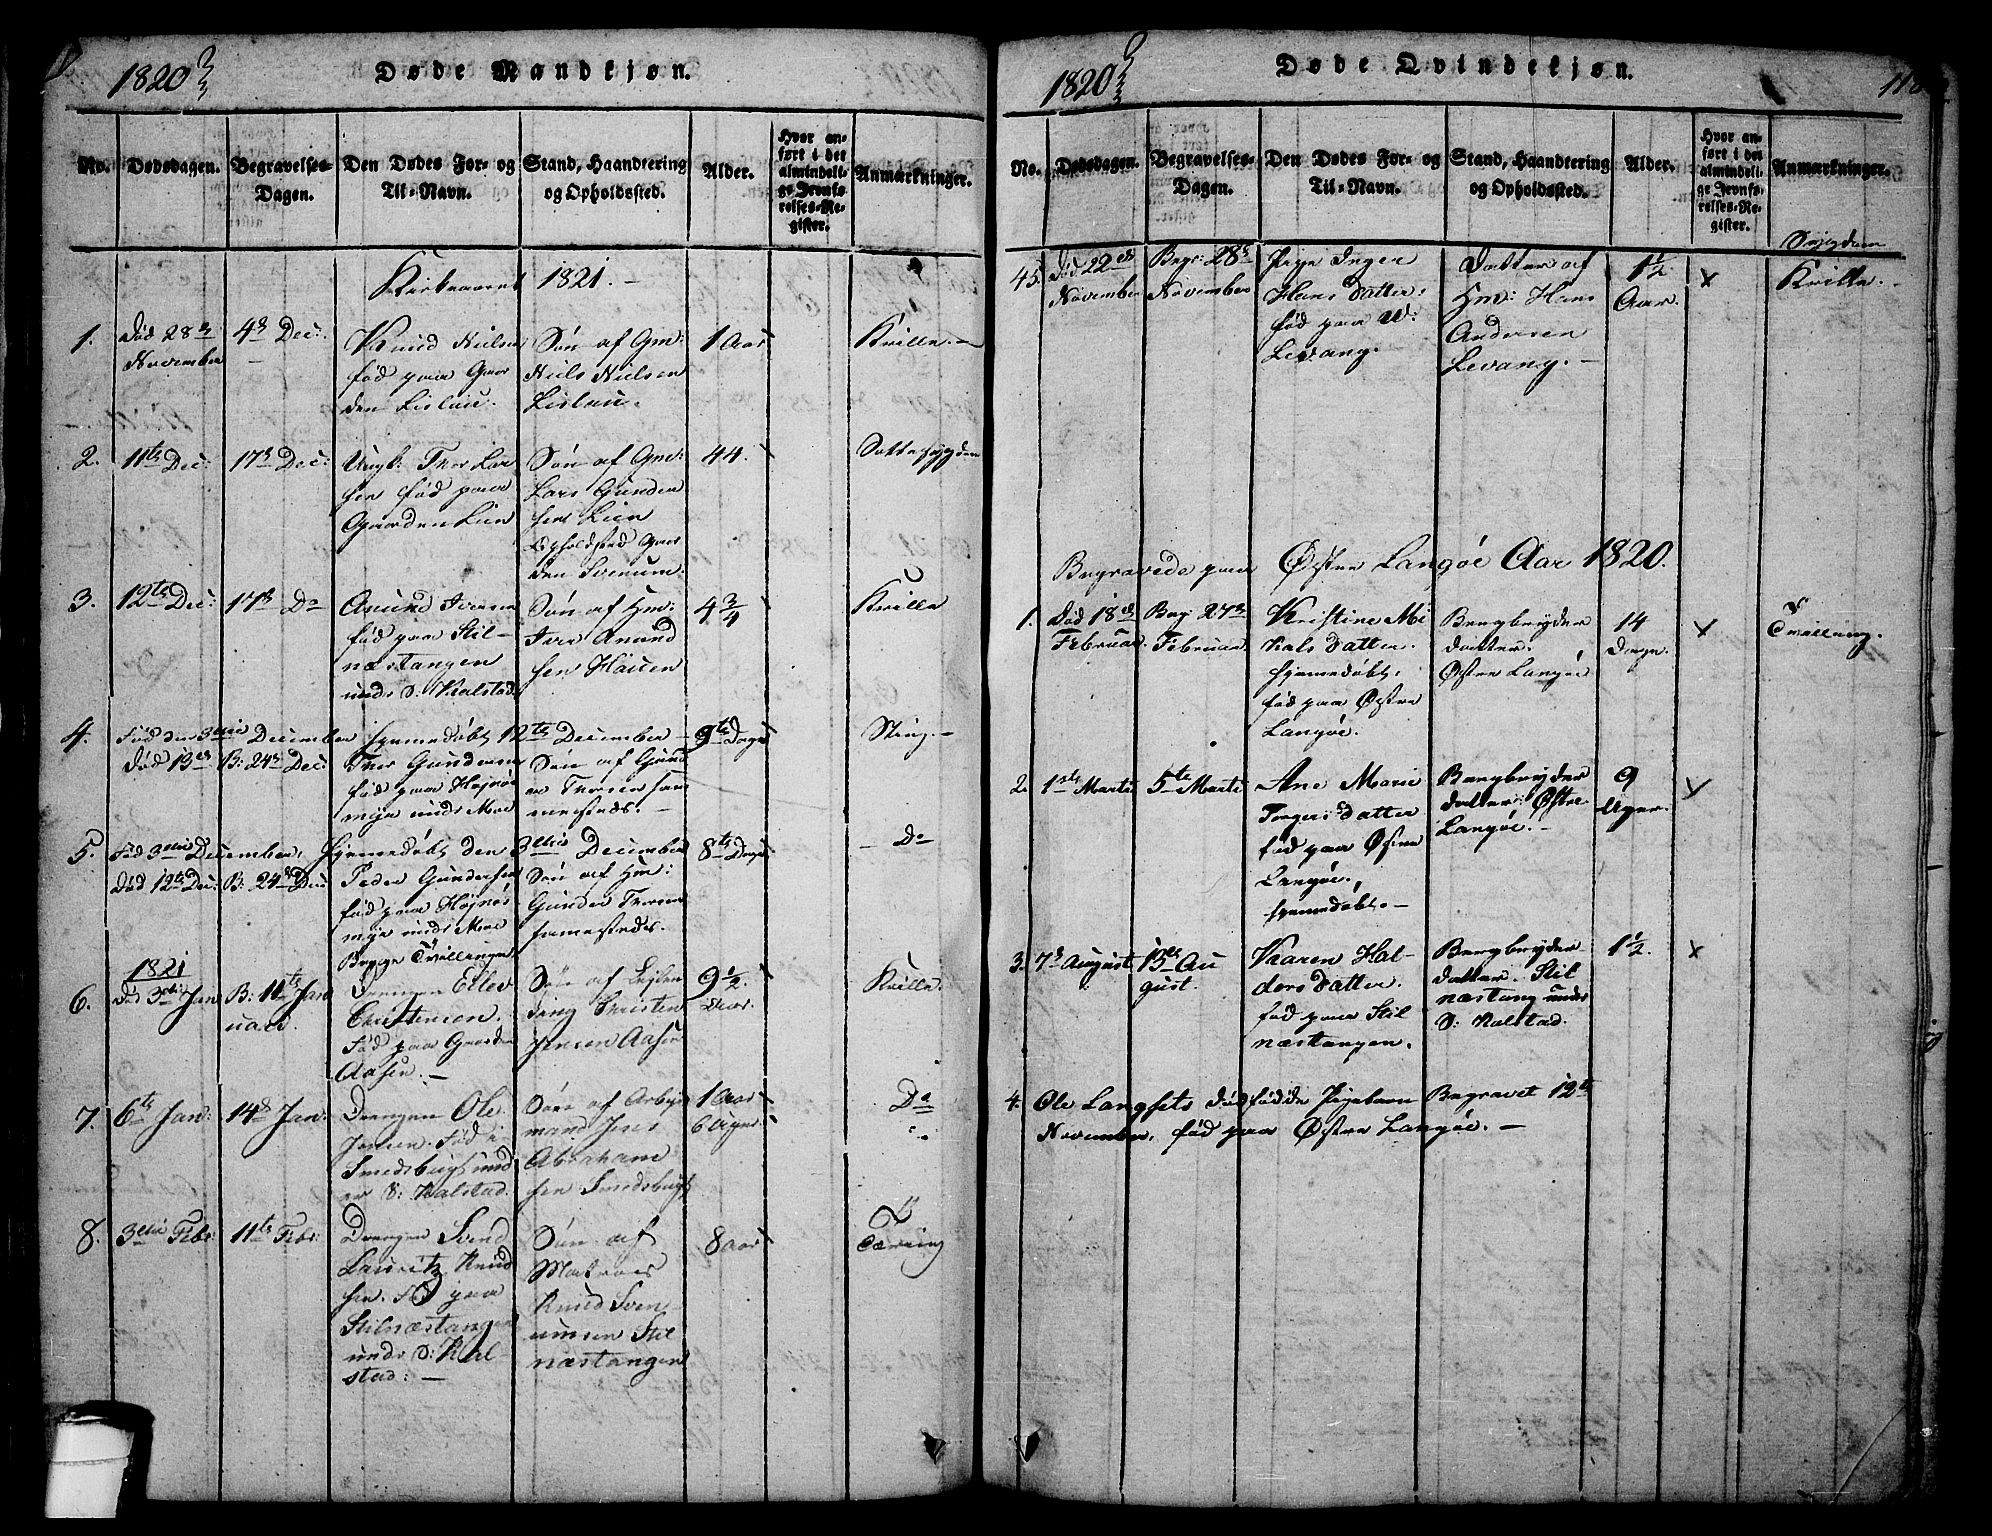 1820
Døde Mandkjøn.
No.
Dødsdagen.
Begravelses-
Dagen.
Den Dødes For- og
Til-Navn.
Stand, Haandtering
og Opholdssted.
Alder.
Hvor an-
ført i det
almindeli-
ge Jevnfø-
relses-Re-
gister.
Anmærkninger.
Kirkeaaret 1821.
1.
Død 28de
November
4de Dec:
Knud Nielsen
fød paa Gaar
den Lislau.
Søn af Gm:
Niels Nielsen
Lislau.
1 Aar
Krille.
2.
11te Dec:
17de Dec:
Ungk: Thor Lar
sen fød paa
Gaarden Lien
Søn af Gm:
Lars Gunder
sen Lien
Opholdsted Gaar
den
44.
Sottesygdom
3.
12te Dec:
17de Do
Anund Iversen
fød paa Stil-
næstangen
under S: Kalstad
Søn af Hm:
Iver Anund
sen Houen
4 3/4
Krille
4.
Fød den 3die December hjemmedøbt 12te December
Død 13de
B: 24de Dec:
Thor Gundersen
fød paa Højnøs
mye under Moe
Søn af Gund
er Thorsen sam
mesteds.
9te Dage
Sting.
5.
Fød 3die December, Hjemmedøbt den 3die December
Død 12te Dec:
B: 24de Dec
Peder Gundersen
fød paa Højnøs
mye under Moe
Begge Tvillinger
Søn af Hm:
Gunder Thorsen
samesteds.
8te Dage
Do
1821
6.
Død 3die Jan
B: 11te Jan
uari.
Drengen Ellev
Christensen.
Fød paa Gaarden
Aasen.
Søn af Lejlen
ding Christen
Jensen Aasen
9 1/2
Aar.
Krille.
7.
6te Jan:
14de Jan:
Drengen Ole
Jensen. Fød i
Smedsbugt und
er S: Kalstad.
Søn af Arbejds
mand Jens
Abraham
sen Smedsbugt
1 Aar
6 Uger.
Do
8.
3die Febr:
11te Febr:
Drengen Svend
Lauritz Knud
sen. Fød paa
Stilnæstangen
under S: Kal-
stad:
Søn af
Matroes
Knud Sven-
unsen Stil
næstangen
8 Aar
Tæring
1820
Døde Qvindekjøn.
118
No.
Dødsdagen.
Begravelses-
Dagen.
Den Dødes For- og
Til-Navn.
Stand, Haandtering
og Opholdssted.
Alder.
Hvor an-
ført i det
almindeli-
ge Jevnfø-
relses-Re-
gister.
Anmærkninger.
Sygdom
45.
Død 22de
November
Begr: 28de
November
Pige Inger
Hans Datter:
fød paa W:
Levang.
Datter af
Hm: Hans
Andersen
Levang.
1 1/2
Aar.
x
Krille.
Begravede paa Østre Langøe Aar 1820.
1.
Død 18de
Februar.
Beg 27de
Februar.
Kristine Mi
kals Datter.
hjemmedøbt:
fød paa Østre
Langøe.
Bergbryder
datter.
Østre Langøe
14
Dage.
x
Tvilling.
2.
1ste Marti
5te Marti
Ane Marie
Torgers Datter
fød paa Østre
Langøe.
hjemmedøbt.
Bergbryder
datter: Østre
Langøe.
9
Uger.
x
3.
7de August
13de Au
gust.
Karen Hal-
dors Datter.
fød paa Stil
næstangen.
Bergbryder-
datter. Stil
næstang under
S: Kalstad.
1 1/2.
x
4.
Ole Langsets dødfødde Pigebarn Begravet 12te
November, fød paa Østre Langøe.